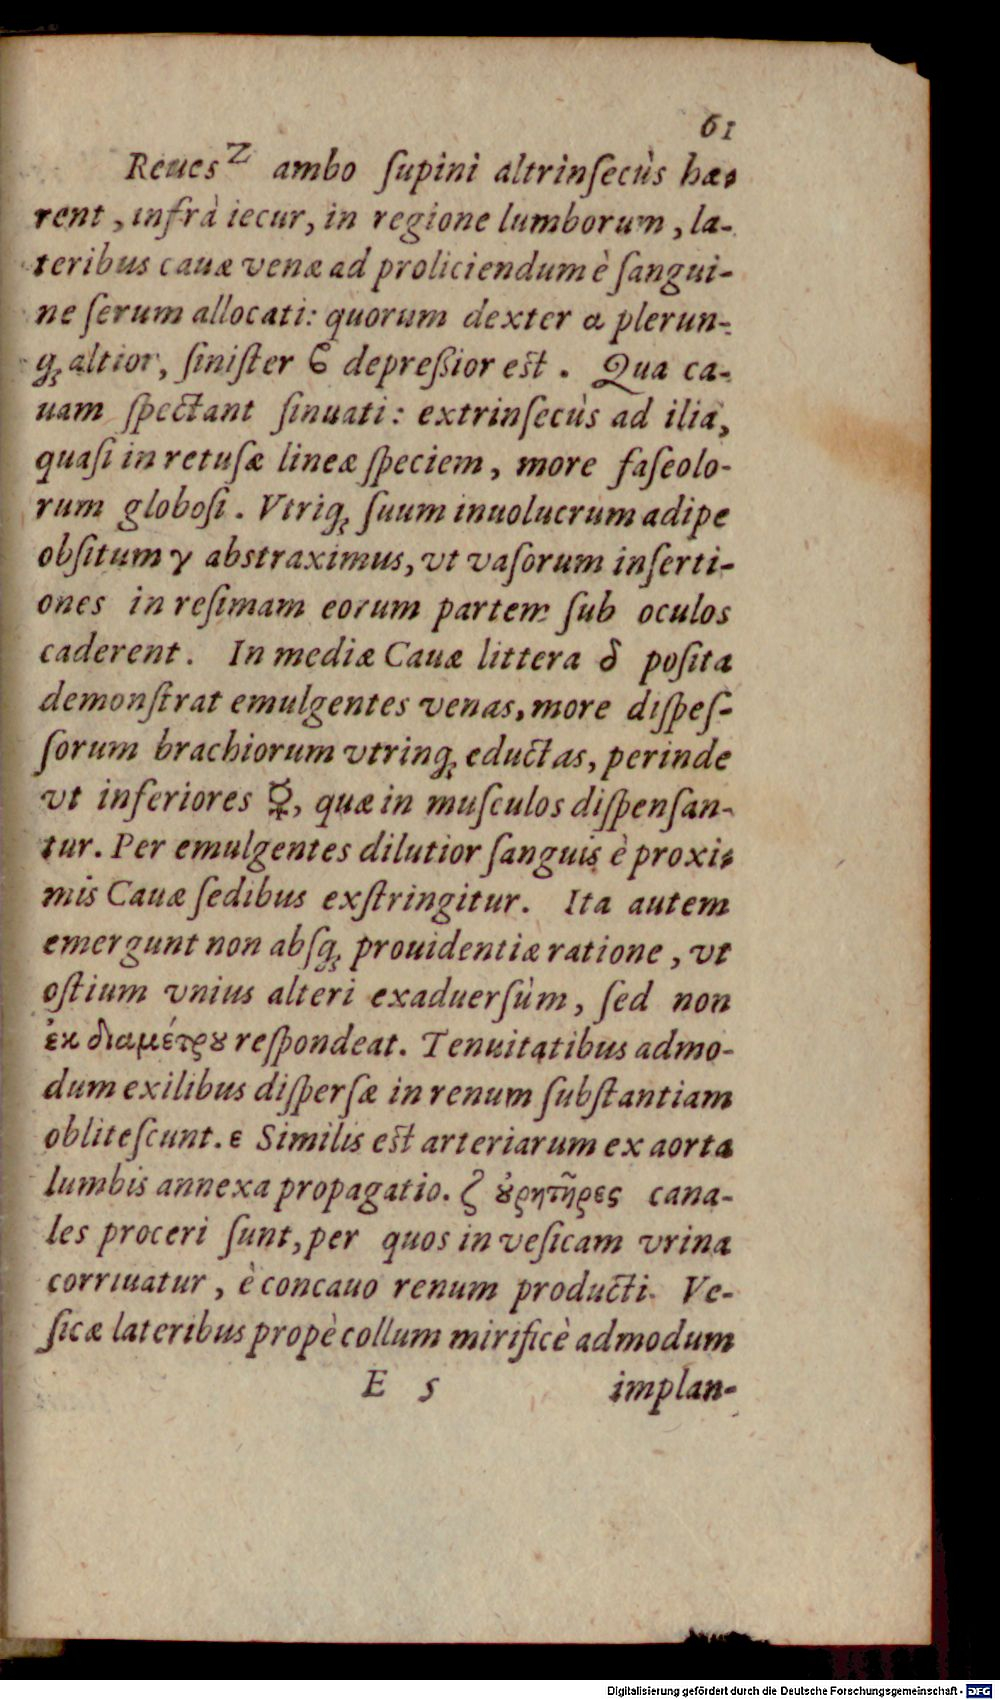 61
Reues Z ambo ſupini altrinſecùs hæ-
rent, infrà iecur, in regione lumborum, la-
teribus cauæ venæ ad proliciendum è ſangui-
ne ſerum allocati: quorum dexter α plerun-
q́ꝫ altior, ſiniſter ϐ depreßior est. Qua ca-
uam ſpectant ſinuati: extrinſecùs ad ilia,
quaſi in retuſæ lineæ ſpeciem, more faſeolo-
rum globoſi. Vtriqꝫ ſuum inuolucrum adipe
obſitum γ abstraximus, vt vaſorum inſerti-
ones in reſimam eorum partem ſub oculos
caderent. In mediæ Cauæ littera δ poſita
demonſtrat emulgentes venas, more diſpeſ-
ſorum brachiorum vtrinqꝫ eductas, perinde
vt inferiores ☿, quæ in muſculos diſpenſan-
tur. Per emulgentes dilutior ſanguis è proxi-
mis Cauæ ſedibus exſtringitur. Ita autem
emergunt non abſqꝫ prouidentiæ ratione, vt
oſtium vnius alteri exaduerſùm, ſed non
ἐκ διαμέτρȣ reſpondeat. Tenuitatibus admo-
dum exilibus diſperſæ in renum ſubſtantiam
obliteſcunt. ε Similis est arteriarum ex aorta
lumbis annexa propagatio. ζ ȣ̓ρητῆρες cana-
les proceri ſunt, per quos in veſicam vrina
corriuatur, è concauo renum producti. Ve-
ſicæ lateribus propè collum mirificè admodum
E 5 implan-
Digitalisierung gefördert durch die Deutsche Forschungsgemeinschaft - DFG